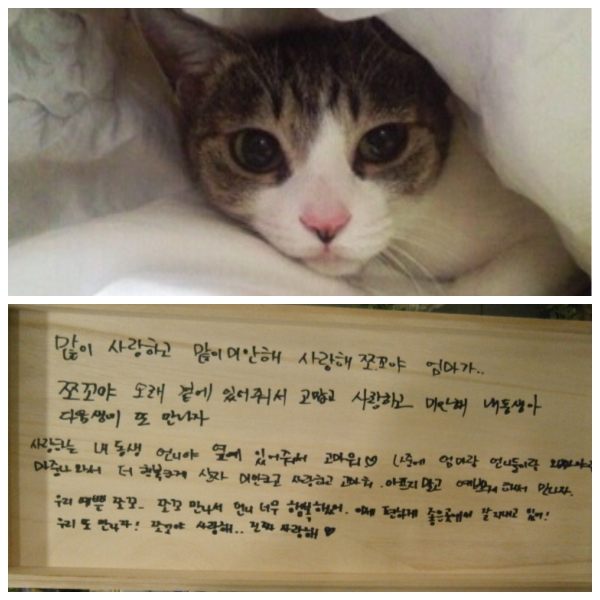 많이 사랑하고 많이 미안해 사랑해 쪼꼬야 엄마가..
쪼꼬야 오래 곁에 있어줘서 고맙고 사랑하고 미안해 내동생아
다음생에 또 만나자
사랑하는 내 동생 언니야 옆에 있어줘서 고마워♡ 나중에 엄마랑 언니들이랑
마중나와서 더 행복하게 살자 미안하고 사랑하고 고마워. 아프지말고 만나자.
우리 예쁜 쪼꼬.. 쪼꼬 만나서 언니 너무 행복했어. 이제 편하게 좋은곳에서 잘 지내고 있어!
우리 또 만나자! 쪼꼬야 사랑해.. 진짜 사랑해 ♡